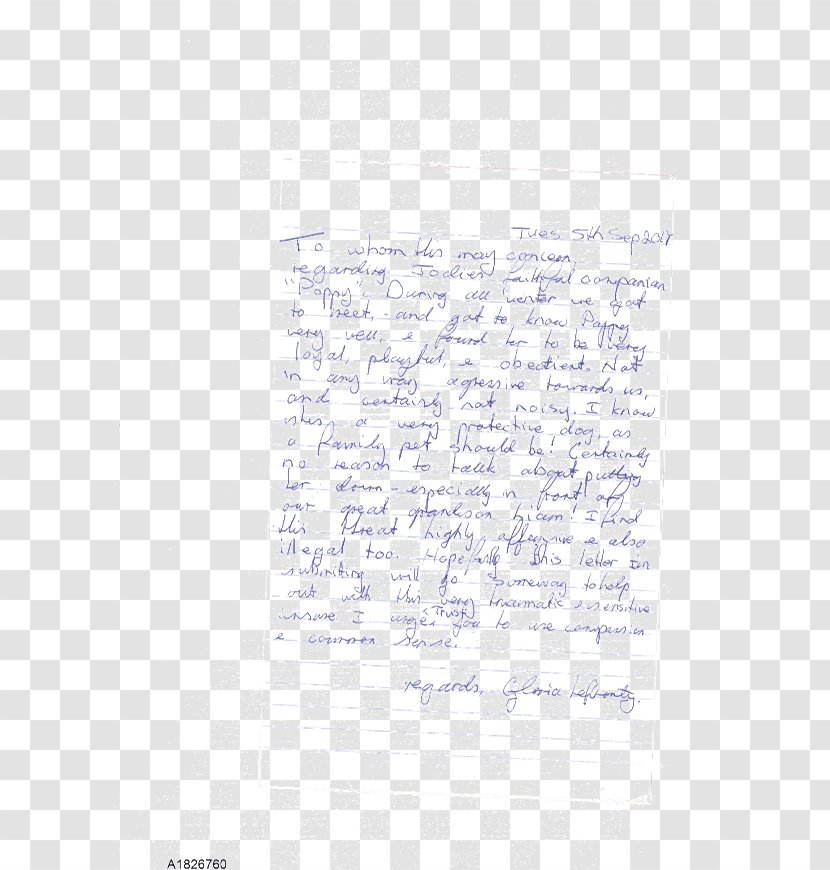 Tues 5th Sep 2017
To whom this may concern,
regarding Jodies faithful companion
"Poppy". During all winter we got
to meet, - and got to know Poppy
very well, & found her to be very
loyal, playful, & obedient. Not
in any way agressive towards us,
and certainly not noisy. I know
shes a very protective dog, as
a family pet should be! Certainly
no reason to talk about putting
her down - especially in front of
our great grandson Liam! I find
this threat highly offensive & also
illegal too. Hopefully this letter Im
submiting will go someway to help
out with this very truamatic & sensitive
issue I urge Trust you to use compassion
& common sense.
regards, Gloria
A1826760